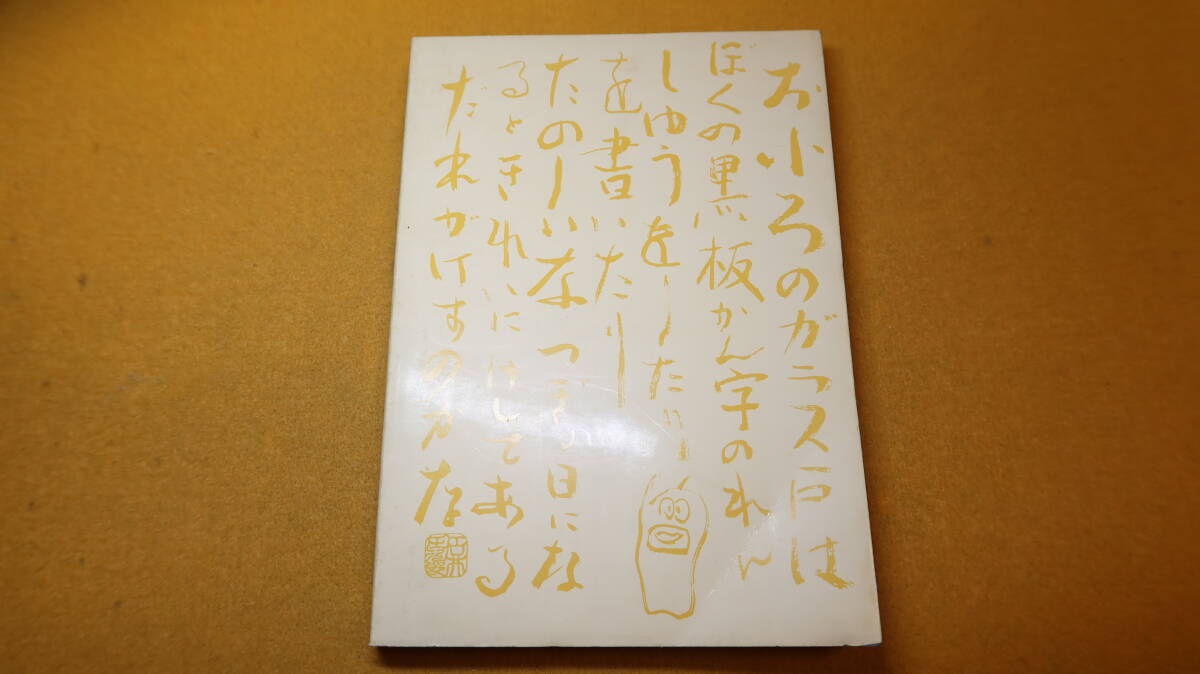 おふろのガラス戸は
ぼくの黒板かん字のれん
しゅうをしたり
を書いたり
たのしいな つぎの日にな
るときれいにけしてある
だれがけすのかな